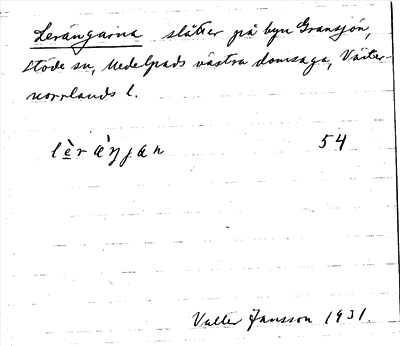 Lerängarna slåtter på byn Gransjön,
Stöde sn, Medelpads västra domsaga, Väster-
norrlands l.
lèræ̀ŋjan 54
Valter Jansson 1931.